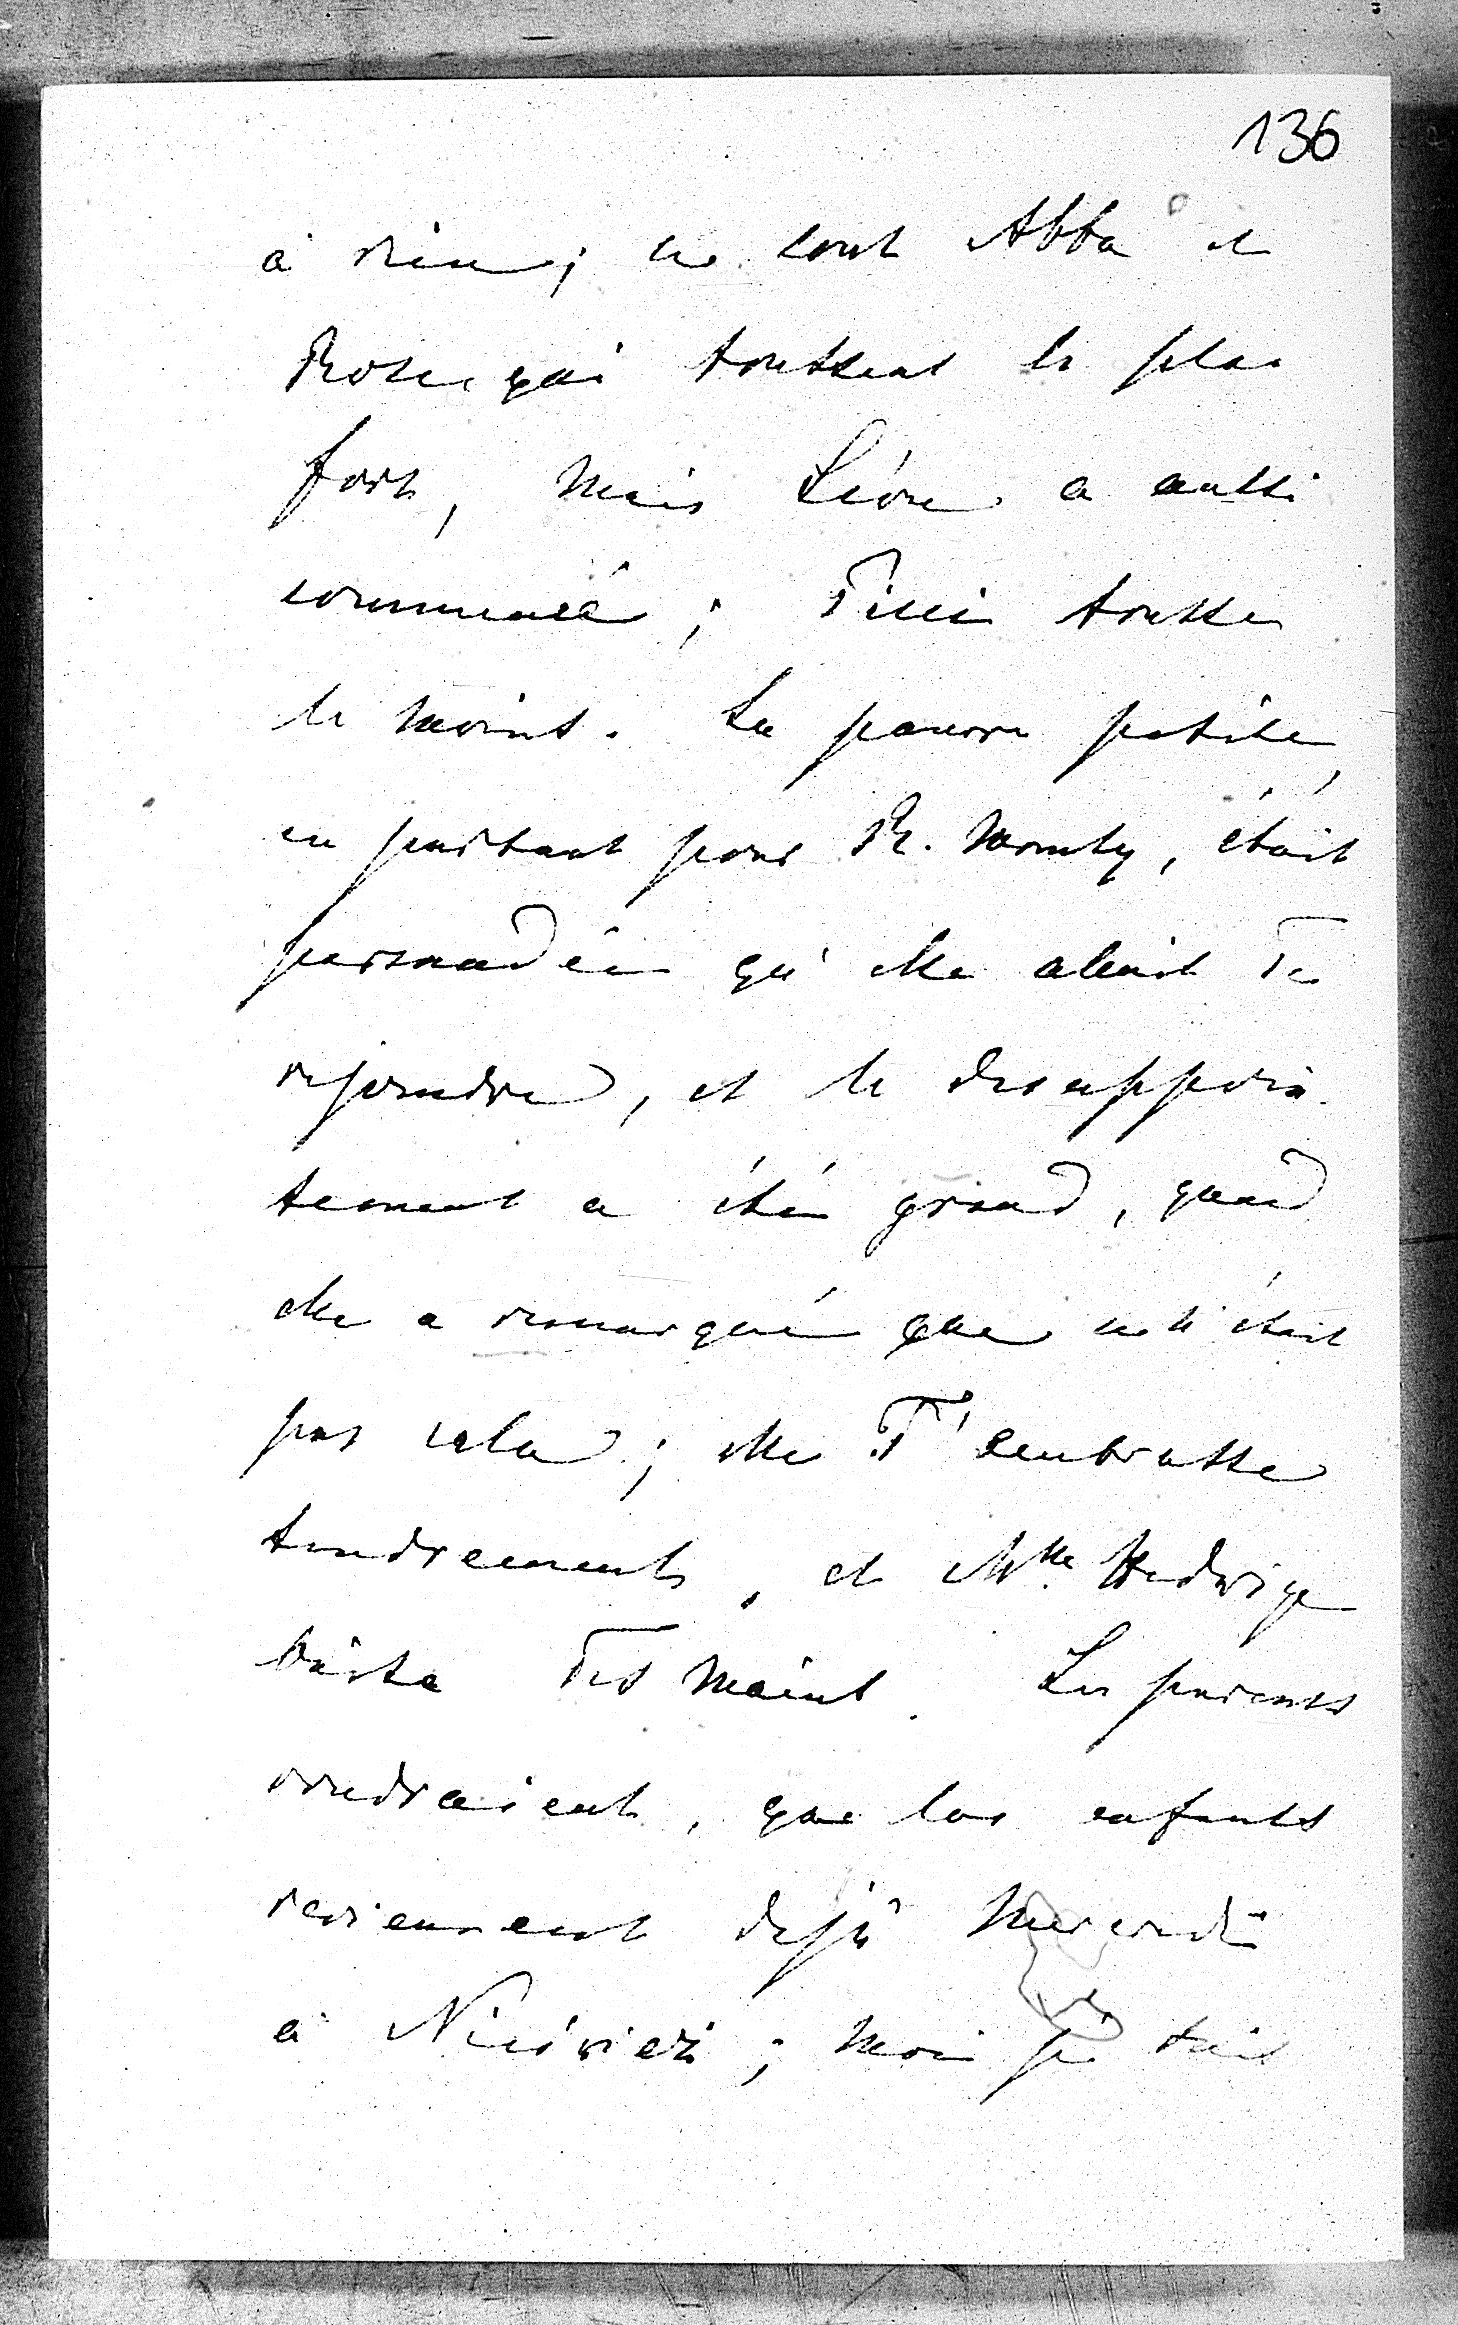 136
à rien; ce sont Abba et
Rose qui toussent le plus
fort, mais Léon a aussi
commencé; Titi tousse
le moins. La pauvre petite,
en partant pour R. Monty, était
persuadée qu'elle allait Te
rejoindre, et le desappoin-
tement a été grand, quand
elle a remarqué que ce n'était
pas cela; elle T'embrasse
tendrement, et Mlle Hedwige
baise Tes mains. Les parents
voudraient, que les enfants
reviennent dejà Mercredi
à Nieśwież; moi je suis